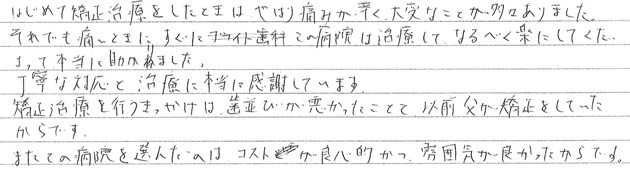 はじめて矯正治療をしたときは、やはり痛みが辛く、大変なことが多々ありました。
それでも痛いときに、すぐにブライト歯科この病院は治療して、なるべく楽にしてくださって本当に助かりました。
丁寧な対応と治療に本当に感謝しています。
矯正治療を行うきっかけは、歯並びが悪かったことと、以前父が矯正をしていた
からです。
またこの病院を選んだのは、コストが良心的かつ、雰囲気が良かったからです。